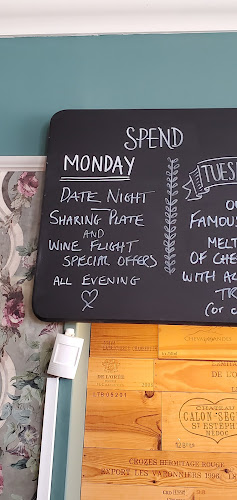 SPEND
MONDAY
DATE NIGHT
SHARING PLATE
AND
WINE FLIGHT
SPECIAL OFFERS
ALL EVENING
TUES
OU
FAMOUS
MELT
OF CHE
WITH AC
TR
(or c
CHATEAU
CALON-SEG
ST ESTEPH
MEDOC
CROZES HERMITAGE ROUGE
EXPORT LES VARONNIERS 1996